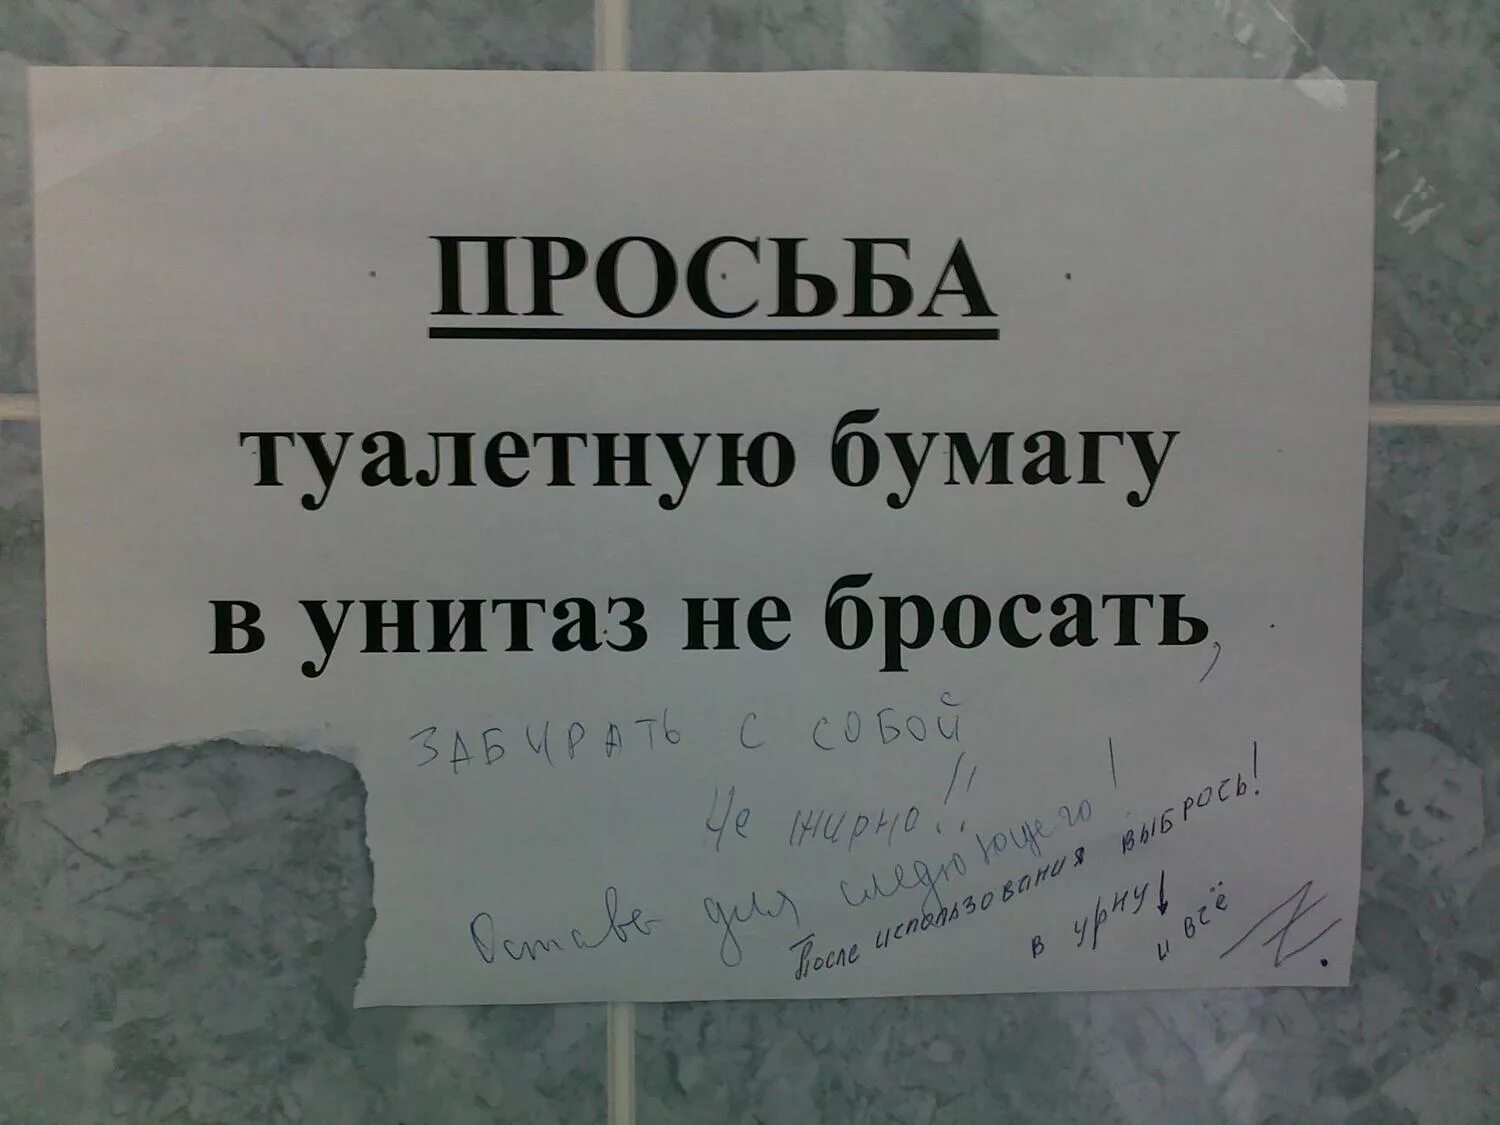 ПРОСЬБА
туалетную бумагу
в унитаз не бросать,
ЗАБИРАТЬ С СОБОЙ
Не жирно!!
Оставь для следующего!
После использования выбрось!
в урну! и всё